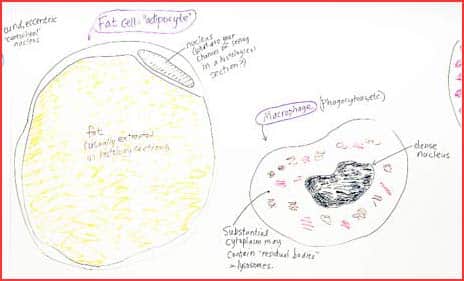 ound, eccentric
nucleus
Fat cell: "adipocyte"
nucleus
(what are your
chances of seeing
in a histological
section?)
fat
(usually extracted
in histology sections)
Macrophage (Phagocytic)
dense
nucleus
Substantial
cytoplasm may
contain "residual bodies"
lysosomes.